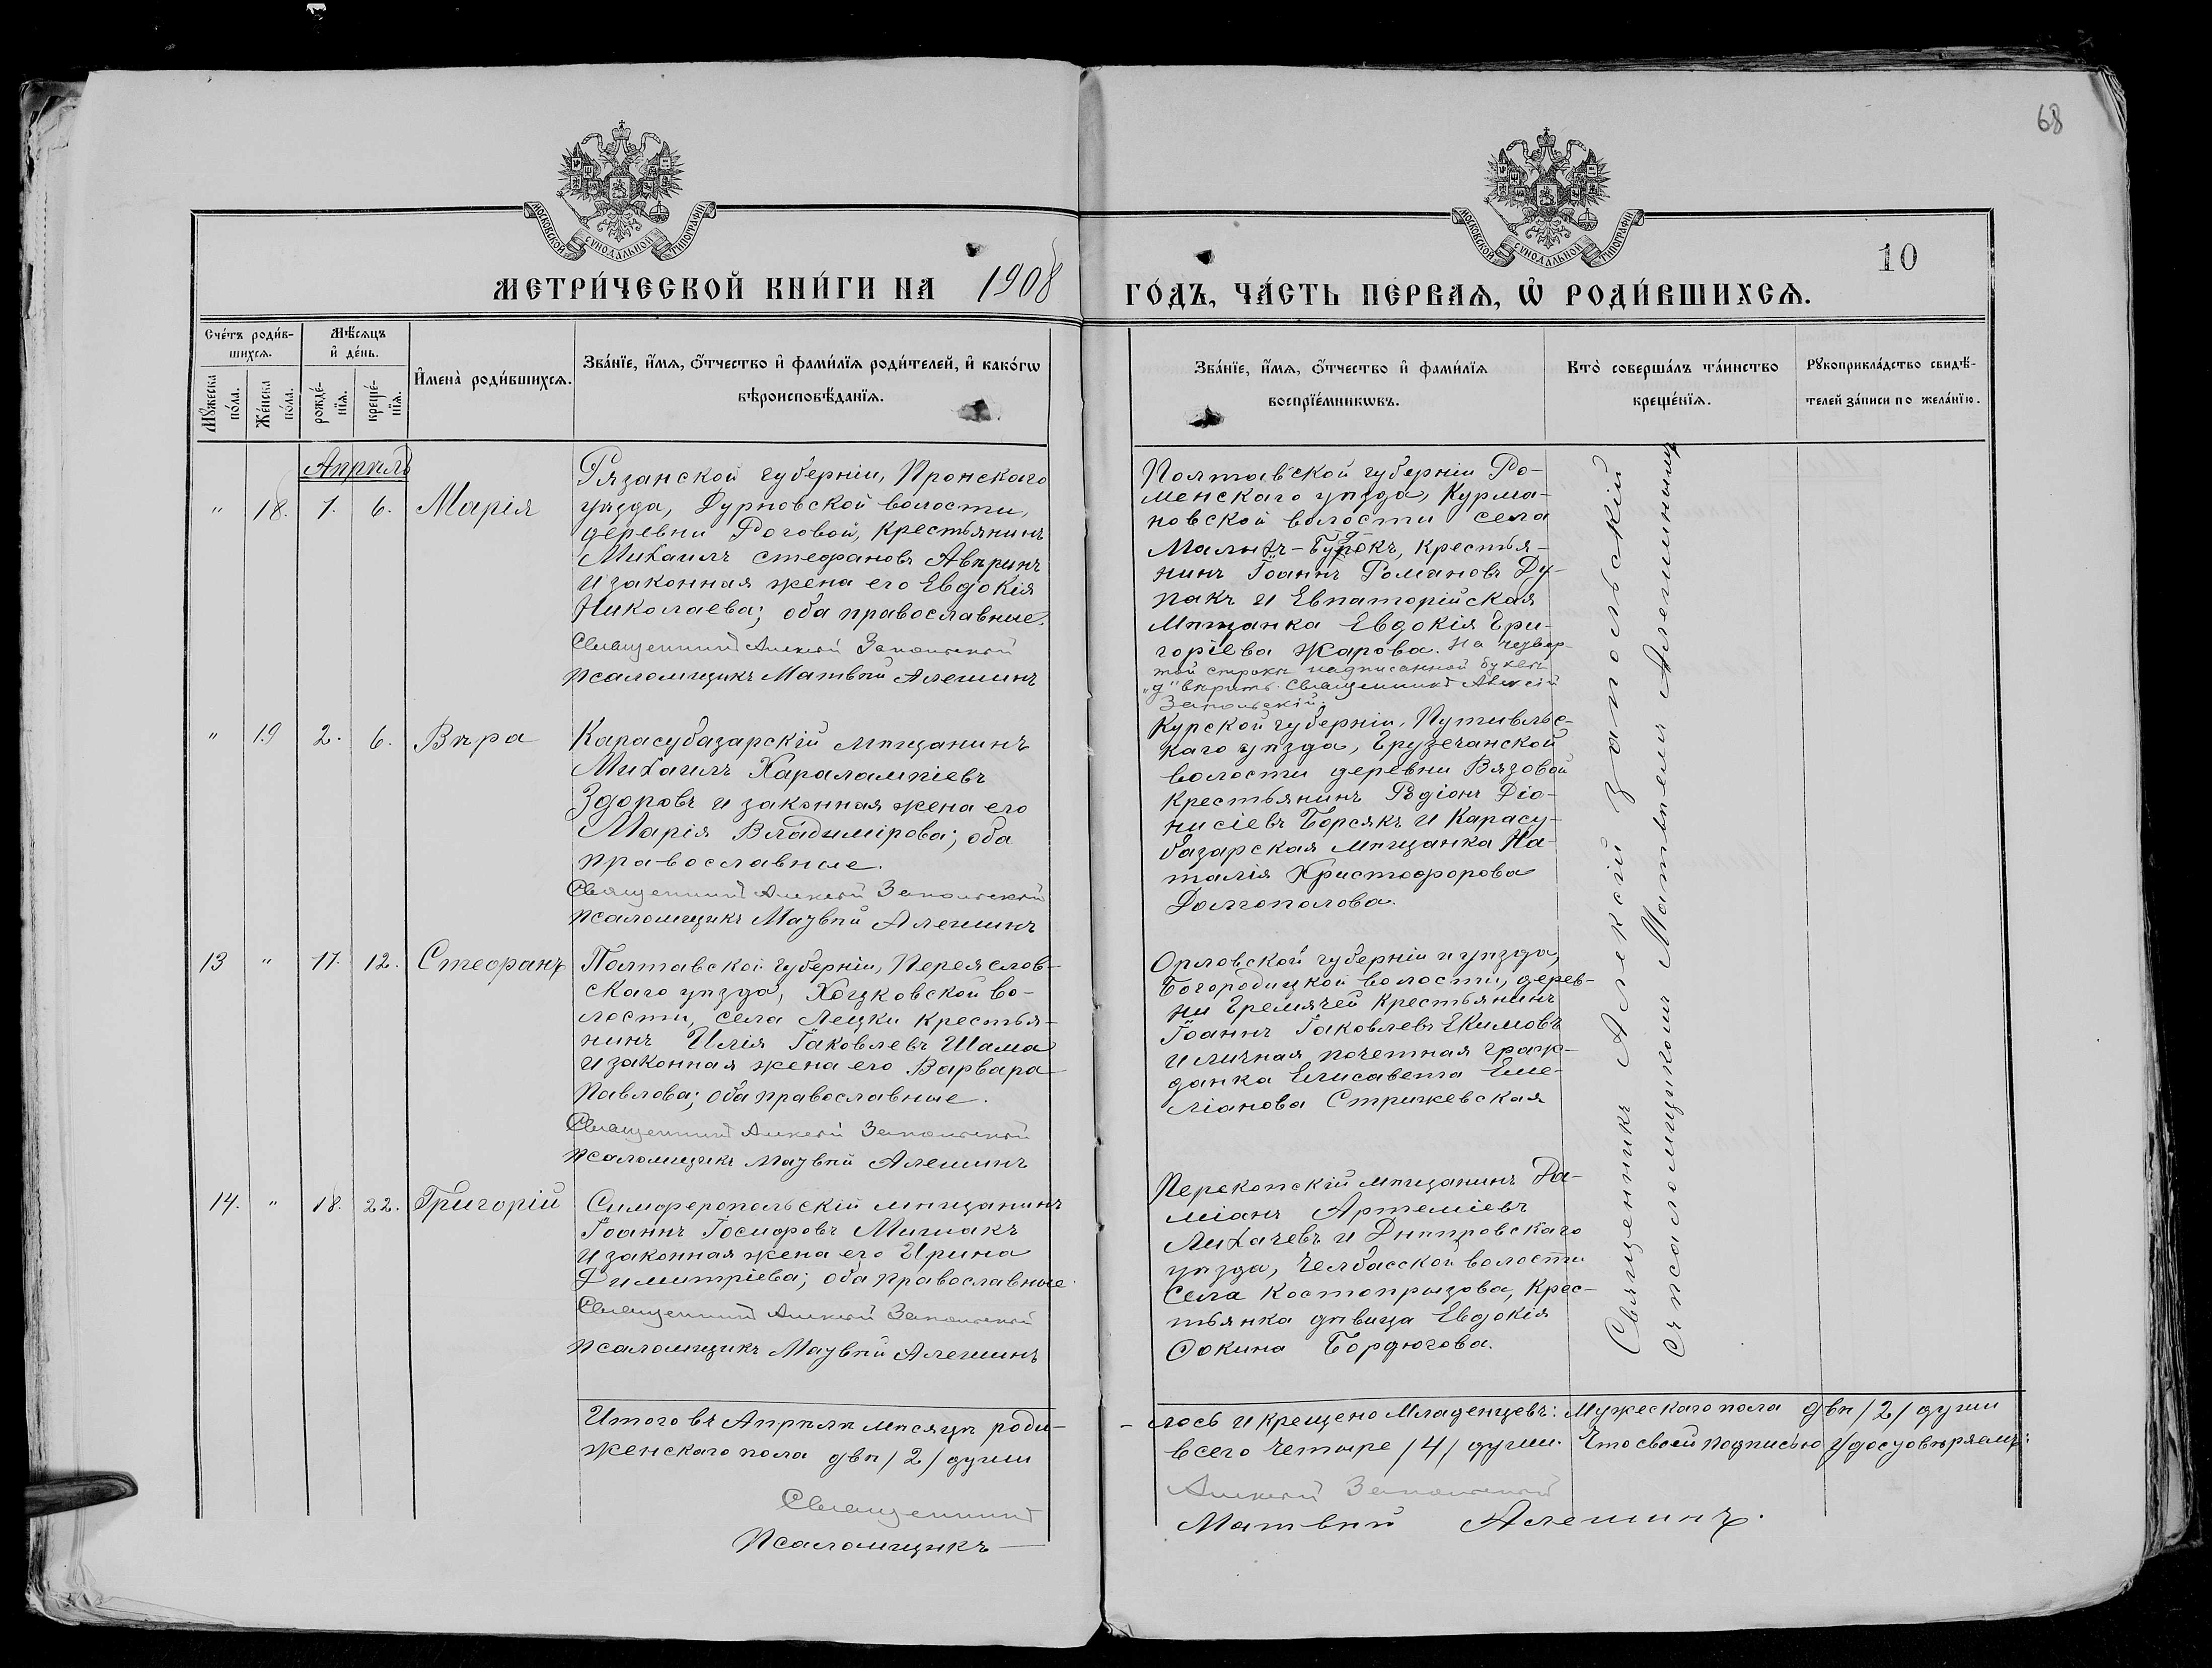 68
МОСКОВСКОЙ СѴНОДАЛЬНОЙ ТИПОГРАФІИ
МОСКОВСКОЙ СѴНОДАЛЬНОЙ ТИПОГРАФІИ
10
МЕТРИ́ЧЕСКОЙ КНИ́ГИ НА 1908 ГО́ДЪ, ЧА́СТЬ ПЕ́РВАѦ, Ѡ҆ РОДИ́ВШИХСѦ.
Сче́тъ роди́в-
шихсѧ.
Мꙋ́жеска
по́ла.
Же́нска
по́ла.
Мѣ́сѧцъ
и҆ де́нь.
рожде́-
нїѧ.
креще́-
нїѧ.
И҆мена̀ роди́вшихсѧ.
Зва́нїе, и҆́мѧ, ѻ҆́тчество и҆ фами́лїѧ роди́телей, и҆ како́гѡ
вѣроисповѣ́данїѧ.
Зва́нїе, и҆́мѧ, ѻ҆́тчество и҆ фами́лїѧ
воспрїе́мникѡвъ.
Кто̀ соверша́лъ та́инство
креще́нїѧ.
Рꙋкоприкла́дство свидѣ́-
телей за́писи по жела́нїю.
Апрѣль
" 18. 1. 6. Марія
Рязанской губерніи, Пронскаго
уѣзда, Дурновской волости,
деревни Роговой, крестьянинъ
Михаилъ Стефановъ Авѣринъ
и законная жена его Евдокія
Николаева; оба православные.
Священникъ Алексій Запольскій
Псаломщикъ Матвѣй Алешинъ
Полтавской губерніи Ро-
менскаго уѣзда, Курма-
новской волости села
Малыхъ-Будокъ, крестья-
нинъ Іоаннъ Романовъ Ду-
пакъ и Евпаторійская
мѣщанка Евдокія Гри-
горіева Жарова. На четвер-
той строкѣ надписанной буквѣ
"д" вѣрить. Священникъ Алексій
Запольскій.
" 19 2. 6. Вѣра
Карасубазарскій мѣщанинъ
Михаилъ Харалампіевъ
Здоровъ и законная жена его
Марія Владимірова; оба
православные.
Священникъ Алексій Запольскій
Псаломщикъ Матвѣй Алешинъ
Курской губерніи, Путивльс-
каго уѣзда, Грузчанской
волости деревни Вязовой
крестьянинъ Родіонъ Діо-
нисіевъ Борсякъ и Карасу-
базарская мѣщанка На-
талія Христофорова
Долгополова.
13 " 11. 12. Стефанъ
Полтавской губерніи, Переяслов-
скаго уѣзда, Хоцковской во-
лости, села Лецки крестья-
нинъ Илія Іаковлевъ Шама
и законная жена его Варвара
Павлова; оба православные.
Священникъ Алексій Запольскій
Псаломщикъ Матвѣй Алешинъ
Орловской губерніи и уѣзда,
Богородицкой волости, дерев-
ни Гремячей крестьянинъ
Іоаннъ Іаковлевъ Екимовъ
и личная почетная граж-
данка Елисавета Еме-
ліанова Стрижевская
14. " 18. 22. Григорій
Симферопольскій мѣщанинъ
Іоаннъ Іосифовъ Мишакъ
и законная жена его Ирина
Димитріева; оба православные.
Священникъ Алексій Запольскій
Псаломщикъ Матвѣй Алешинъ
Перекопскій мѣщанинъ Да-
міанъ Артеміевъ
Лихачевъ и Днѣпровскаго
уѣзда, Челбасской волости
села Костопрызова, крес-
тьянка дѣвица Евдокія
Фокина Бордюгова.
Священникъ Алексій Запольскій
съ псаломщикомъ Матвѣемъ Алешинымъ
Итого въ Апрѣлѣ мѣсяцѣ роди-
лось и крещено младенцевъ: Мужескаго пола двѣ /2/ души
женскаго пола двѣ /2/ души
всего четыре /4/ души. Что своей подписью удостовѣряемъ:
Священникъ Алексій Запольскій
Псаломщикъ Матвѣй Алешинъ.